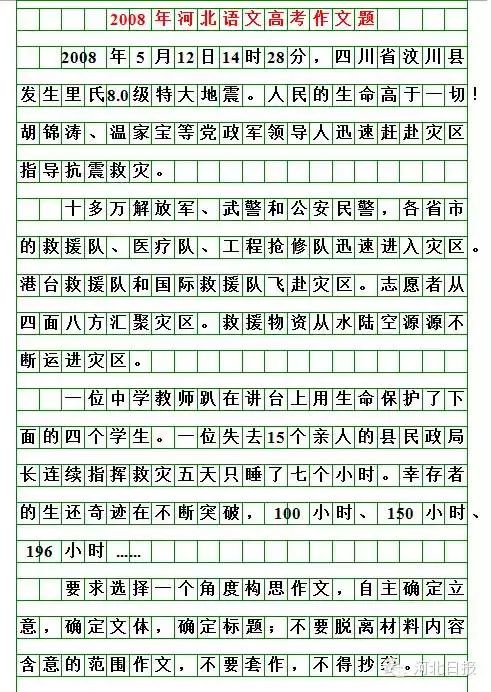 2008年河北语文高考作文题
2008 年 5 月12日14时28分，四川省汶川县
发生里氏8.0级特大地震。人民的生命高于一切！
胡锦涛、温家宝等党政军领导人迅速赶赴灾区
指导抗震救灾。
十多万解放军、武警和公安民警，各省市
的救援队、医疗队、工程抢修队迅速进入灾区。
港台救援队和国际救援队飞赴灾区。志愿者从
四面八方汇聚灾区。救援物资从水陆空源源不
断运进灾区。
一位中学教师趴在讲台上用生命保护了下
面的四个学生。一位失去15个亲人的县民政局
长连续指挥救灾五天只睡了七个小时。幸存者
的生还奇迹在不断突破，100 小时、150 小时、
196 小时 ……
要求选择一个角度构思作文，自主确定立
意，确定文体，确定标题；不要脱离材料内容
含意的范围作文，不要套作，不得抄袭。
河北日报